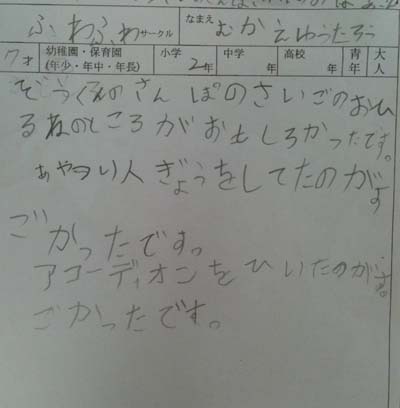 ふわふわサークル なまえ むかえゆうたろう
7才 幼稚園・保育園 (年少・年中・年長) 小学 2年 中学 年 高校 年 青年 大人
ぞうくんのさんぽのさいごのおひ
るねのところがおもしろかったです。
あやつり人ぎょうをしてたのがす
ごかったです。
アコーディオンをひいたのがす
ごかったです。